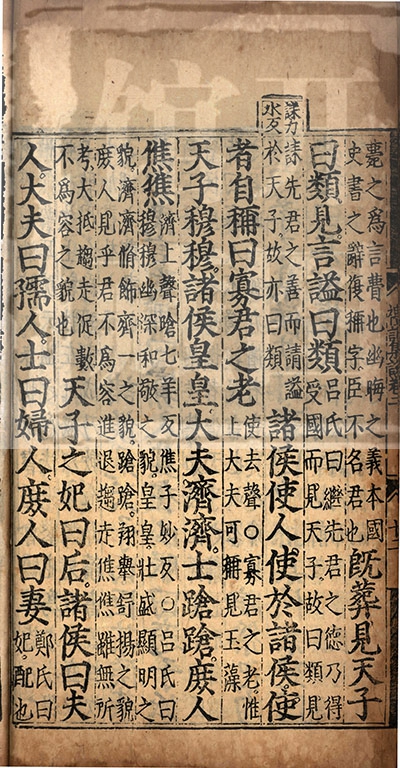 薨之為言瞢也幽晦之義本國
史書之辭復稱字臣不名君也
既葬見天子
曰類見言謚曰類
呂氏曰繼先君之德乃得
受國而見天子故曰類見
誄力
水反
誄先君之善而請謚
於天子故亦曰類
諸侯使人使於諸侯使
者自稱曰寡君之老
使去聲○寡君之老惟
上大夫可稱見玉藻
天子穆穆諸侯皇皇大夫濟濟士蹌蹌庶人
僬僬
濟上聲蹌七羊反僬子妙反○呂氏曰
穆穆幽深和敬之貌皇皇壯盛顯明之
貌濟濟脩飾齊一之貌蹌蹌翔舉舒揚之貌
庶人見乎君不為容進退趨走僬僬雖無所
考大抵趨走促數
不為容之貌也
天子之妃曰后諸侯曰夫
人大夫曰孺人士曰婦人庶人曰妻
鄭氏曰
妃配也